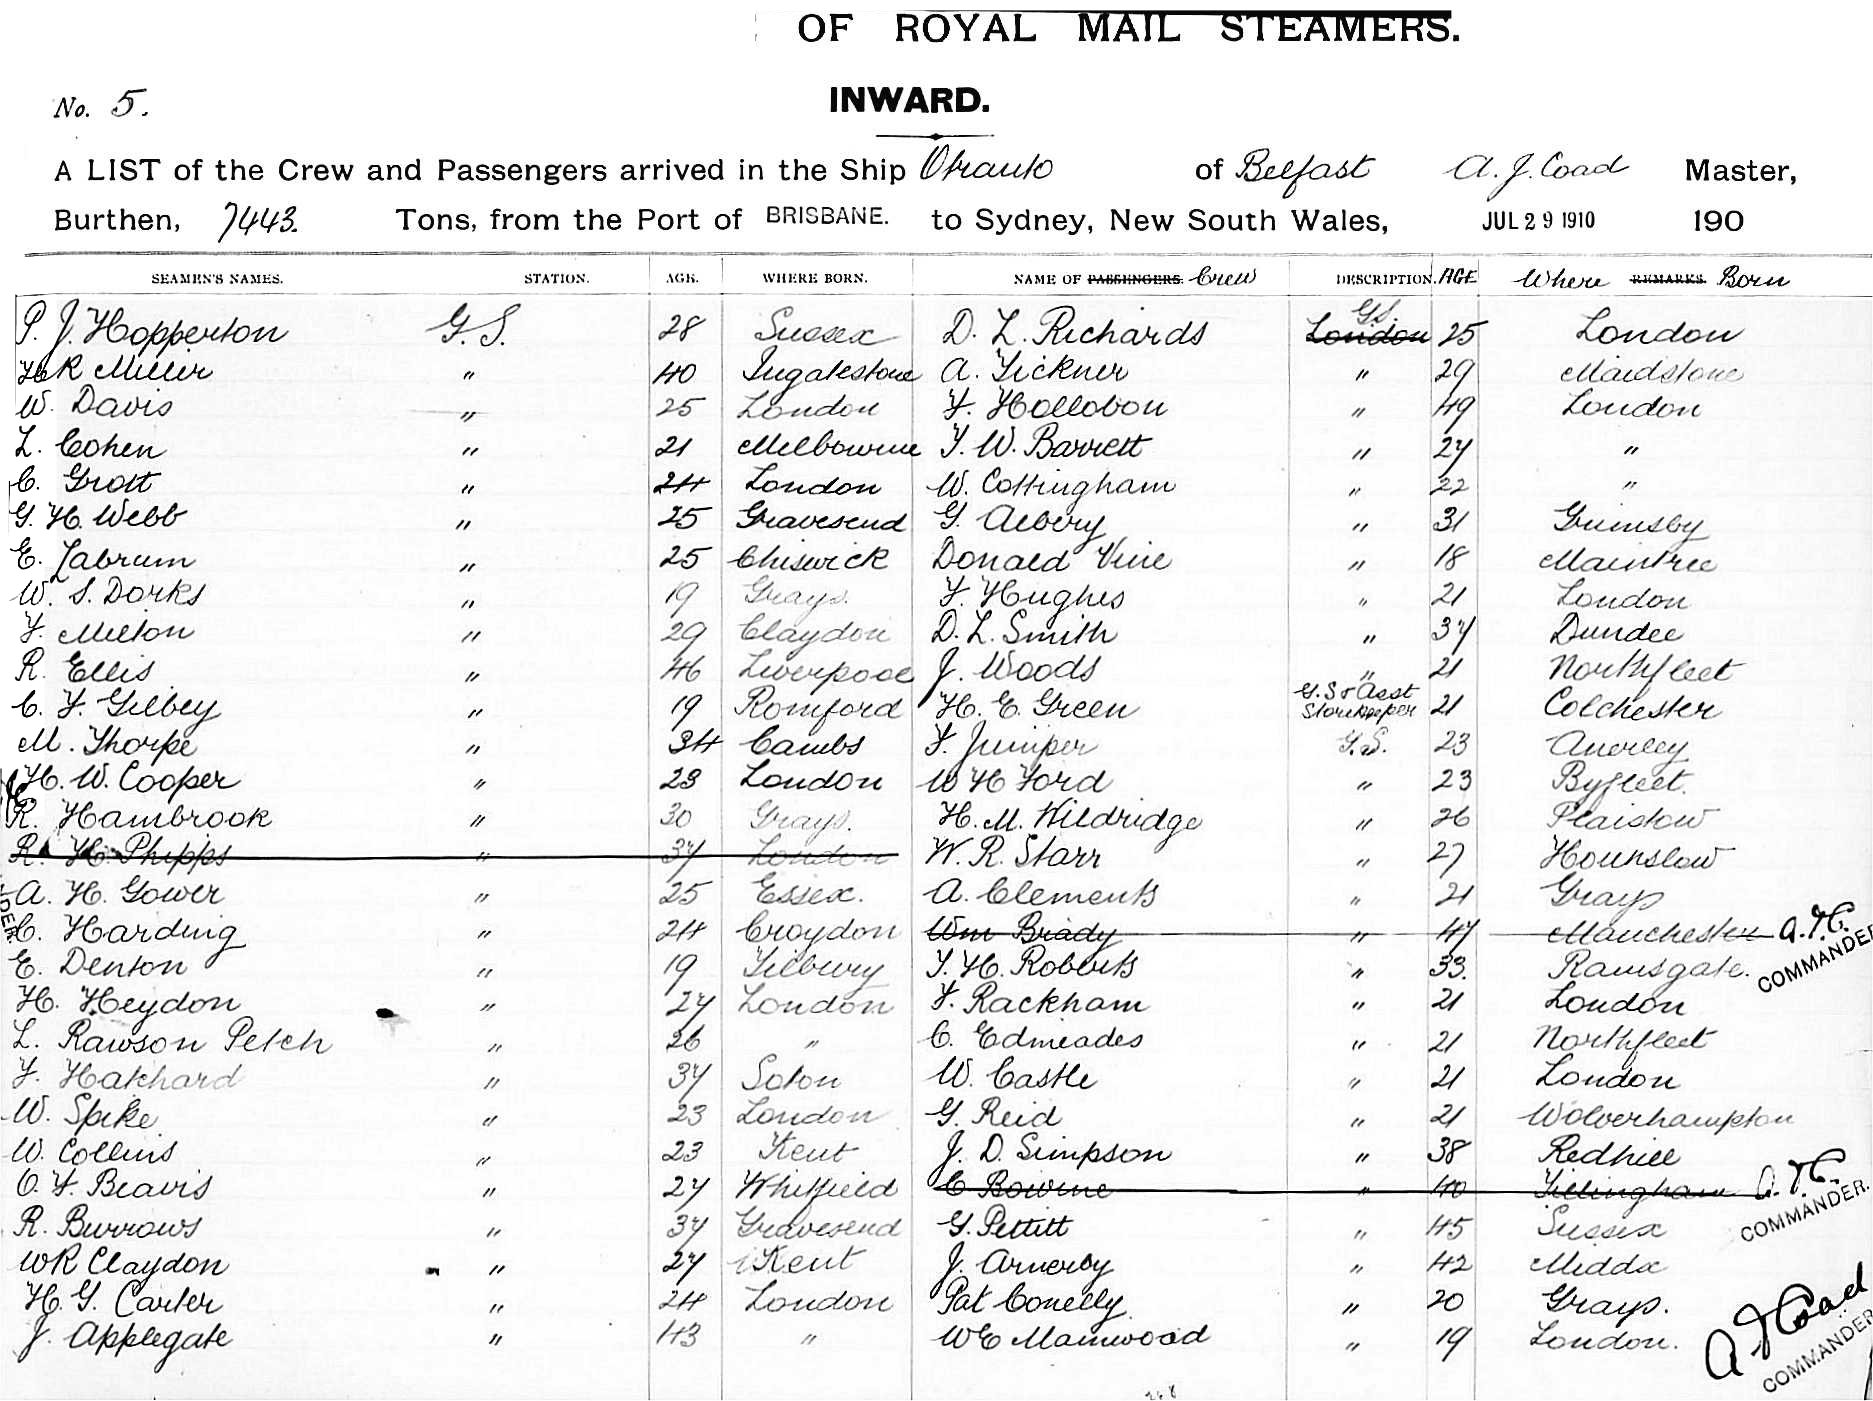 OF ROYAL MAIL STEAMERS.
INWARD.
No. 5.
A LIST of the Crew and Passengers arrived in the Ship Otranto of Belfast A. J. Coad Master,
Burthen, 7443. Tons, from the Port of BRISBANE. to Sydney, New South Wales, JUL 29 1910 190
SEAMEN'S NAMES. STATION. AGE. WHERE BORN. NAME OF PASSENGERS. Crew DESCRIPTION. AGE Where REMARKS. Born
P. J. Hopperton G. S. 28 Sussex D. L. Richards London G.S. 25 London
R Miller " 40 Ingatestone A. Tickner " 29 Maidstone
W. Davis " 25 London F. Hollobon " 49 London
L. Cohen " 21 Melbourne T. W. Barrett " 27 "
C. Grott " 24 London W. Cottingham " 22 "
G. H. Webb " 25 Gravesend G. Albery " 31 Grimsby
E. Labrum " 25 Chiswick Donald Vine " 18 Maintree
W. S. Dorks " 19 Grays. F. Hughes " 21 London
F. Milton " 29 Claydon D. L. Smith " 37 Dundee
R. Ellis " 46 Liverpool J. Woods " 21 Northfleet
C. F. Gilbey " 19 Romford H. E. Green G.S & Asst Storekeeper 21 Colchester
M. Thorpe " 34 Cambs F. Juniper G.S. 23 Anerley
H. W. Cooper " 23 London W H Ford " 23 Byfleet.
R. Hambrook " 30 Grays. H. M. Wildridge " 26 Plaistow
R. H. Phipps " 37 London W. R. Starr " 27 Hounslow
A. H. Gower " 25 Essex. A. Clements " 21 Grays
C. Harding " 24 Croydon Wm Brady " 47 Manchester A.J.C. COMMANDER
E. Denton " 19 Tilbury T. H. Robbets " 33. Ramsgate.
H. Heydon " 27 London F. Rackham " 21 London
L. Rawson Petch " 26 " C. Edmeades " 21 Northfleet
F. Hakhard " 37 Soton W. Castle " 21 London
W. Spike " 23 London G. Reid " 21 Wolverhampton
W. Collins " 23 Kent J. D. Simpson " 38 Redhill
O. F. Beavis " 27 Whitfield C Bourne " 40 Tillingham A.J.C. COMMANDER.
R. Burrows " 37 Gravesend G. Pettitt " 45 Sussex
W R Claydon " 27 Kent J. Arnerby " 42 Middx
H. G. Carter " 24 London Pat Conelly " 20 Grays.
J. Applegate " 43 " W E Mainwood " 19 London. A J Coad COMMANDER